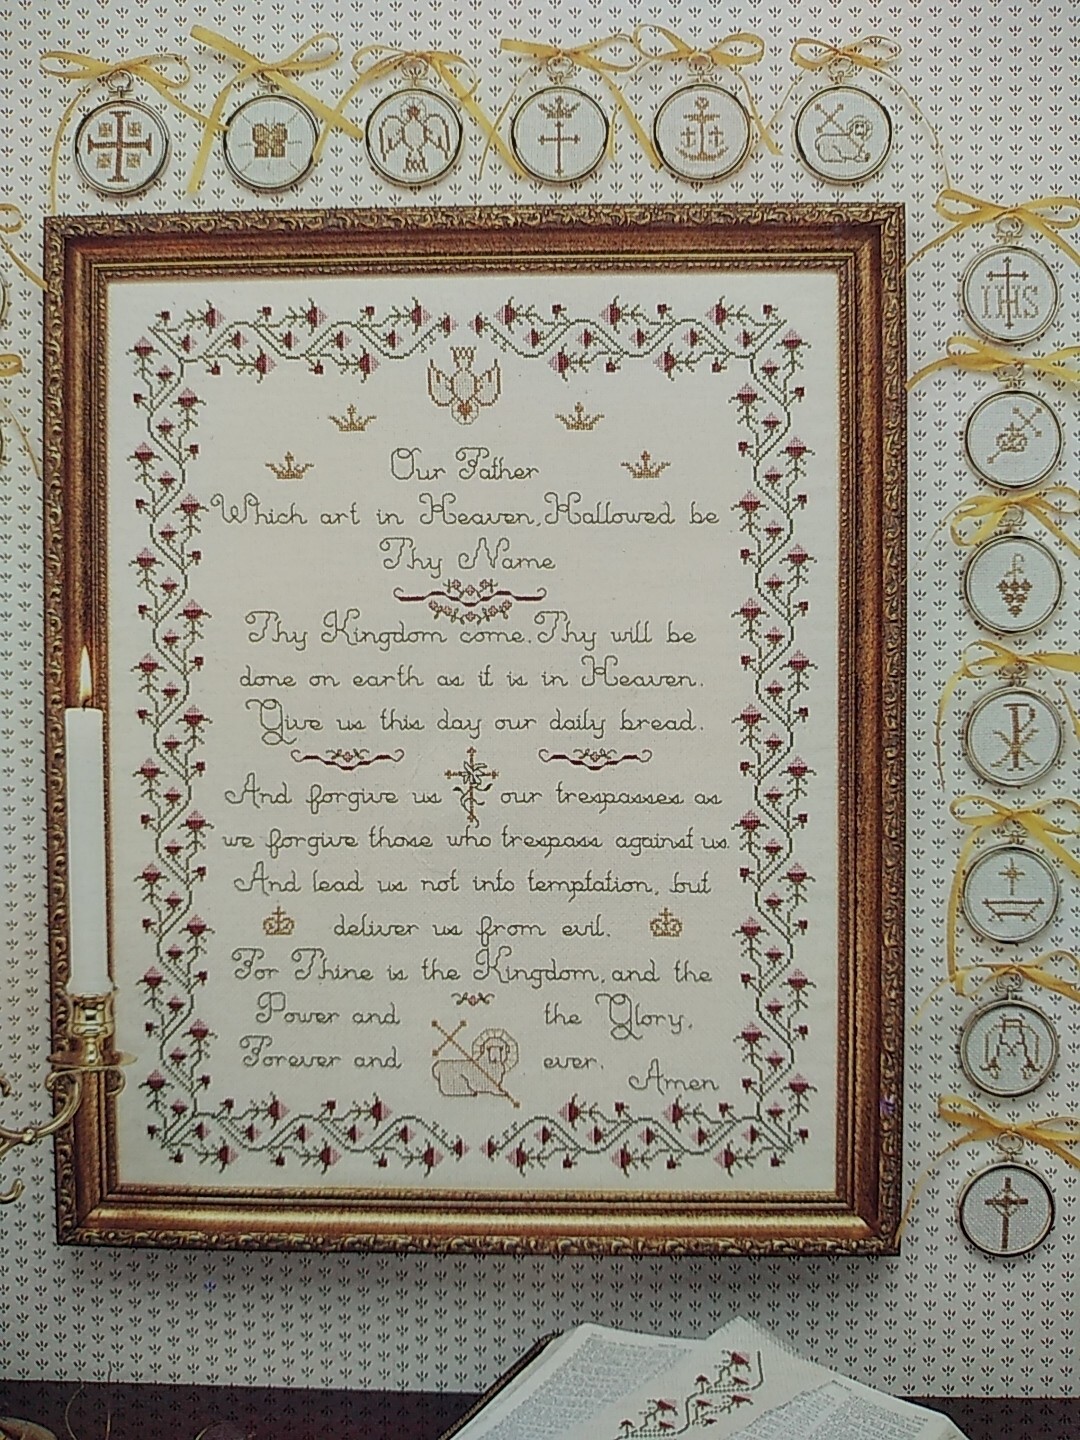 Our Father
Which art in Heaven, Hallowed be
Thy Name
Thy Kingdom come. Thy will be
done on earth as it is in Heaven.
Give us this day our daily bread.
And forgive us our trespasses as
we forgive those who trespass against us.
And lead us not into temptation, but
deliver us from evil.
For Thine is the Kingdom, and the
Power and the Glory,
Forever and ever.
Amen
IHS